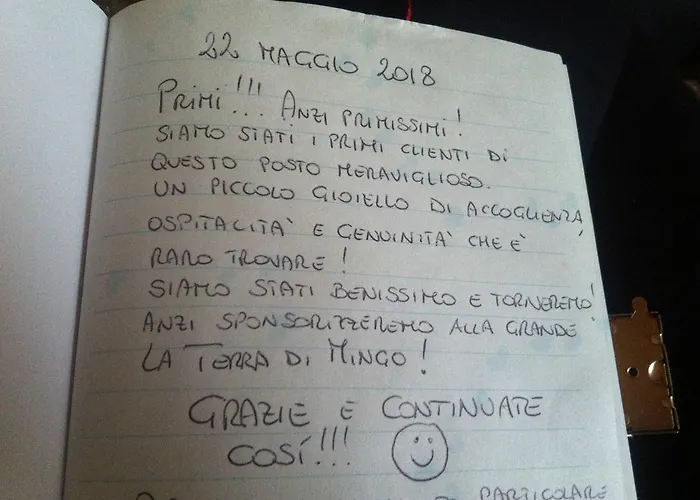 22 MAGGIO 2018
PRIMI!!!... ANZI PRIMISSIMI!
SIAMO STATI I PRIMI CLIENTI DI
QUESTO POSTO MERAVIGLIOSO.
UN PICCOLO GIOIELLO DI ACCOGLIENZA,
OSPITALITÀ E GENUINITÀ CHE È
RARO TROVARE!
SIAMO STATI BENISSIMO E TORNEREMO!
ANZI SPONSORIZZEREMO ALLA GRANDE
LA TERRA DI MINGO!
GRAZIE E CONTINUATE
COSÍ!!!
PARTICOLARE